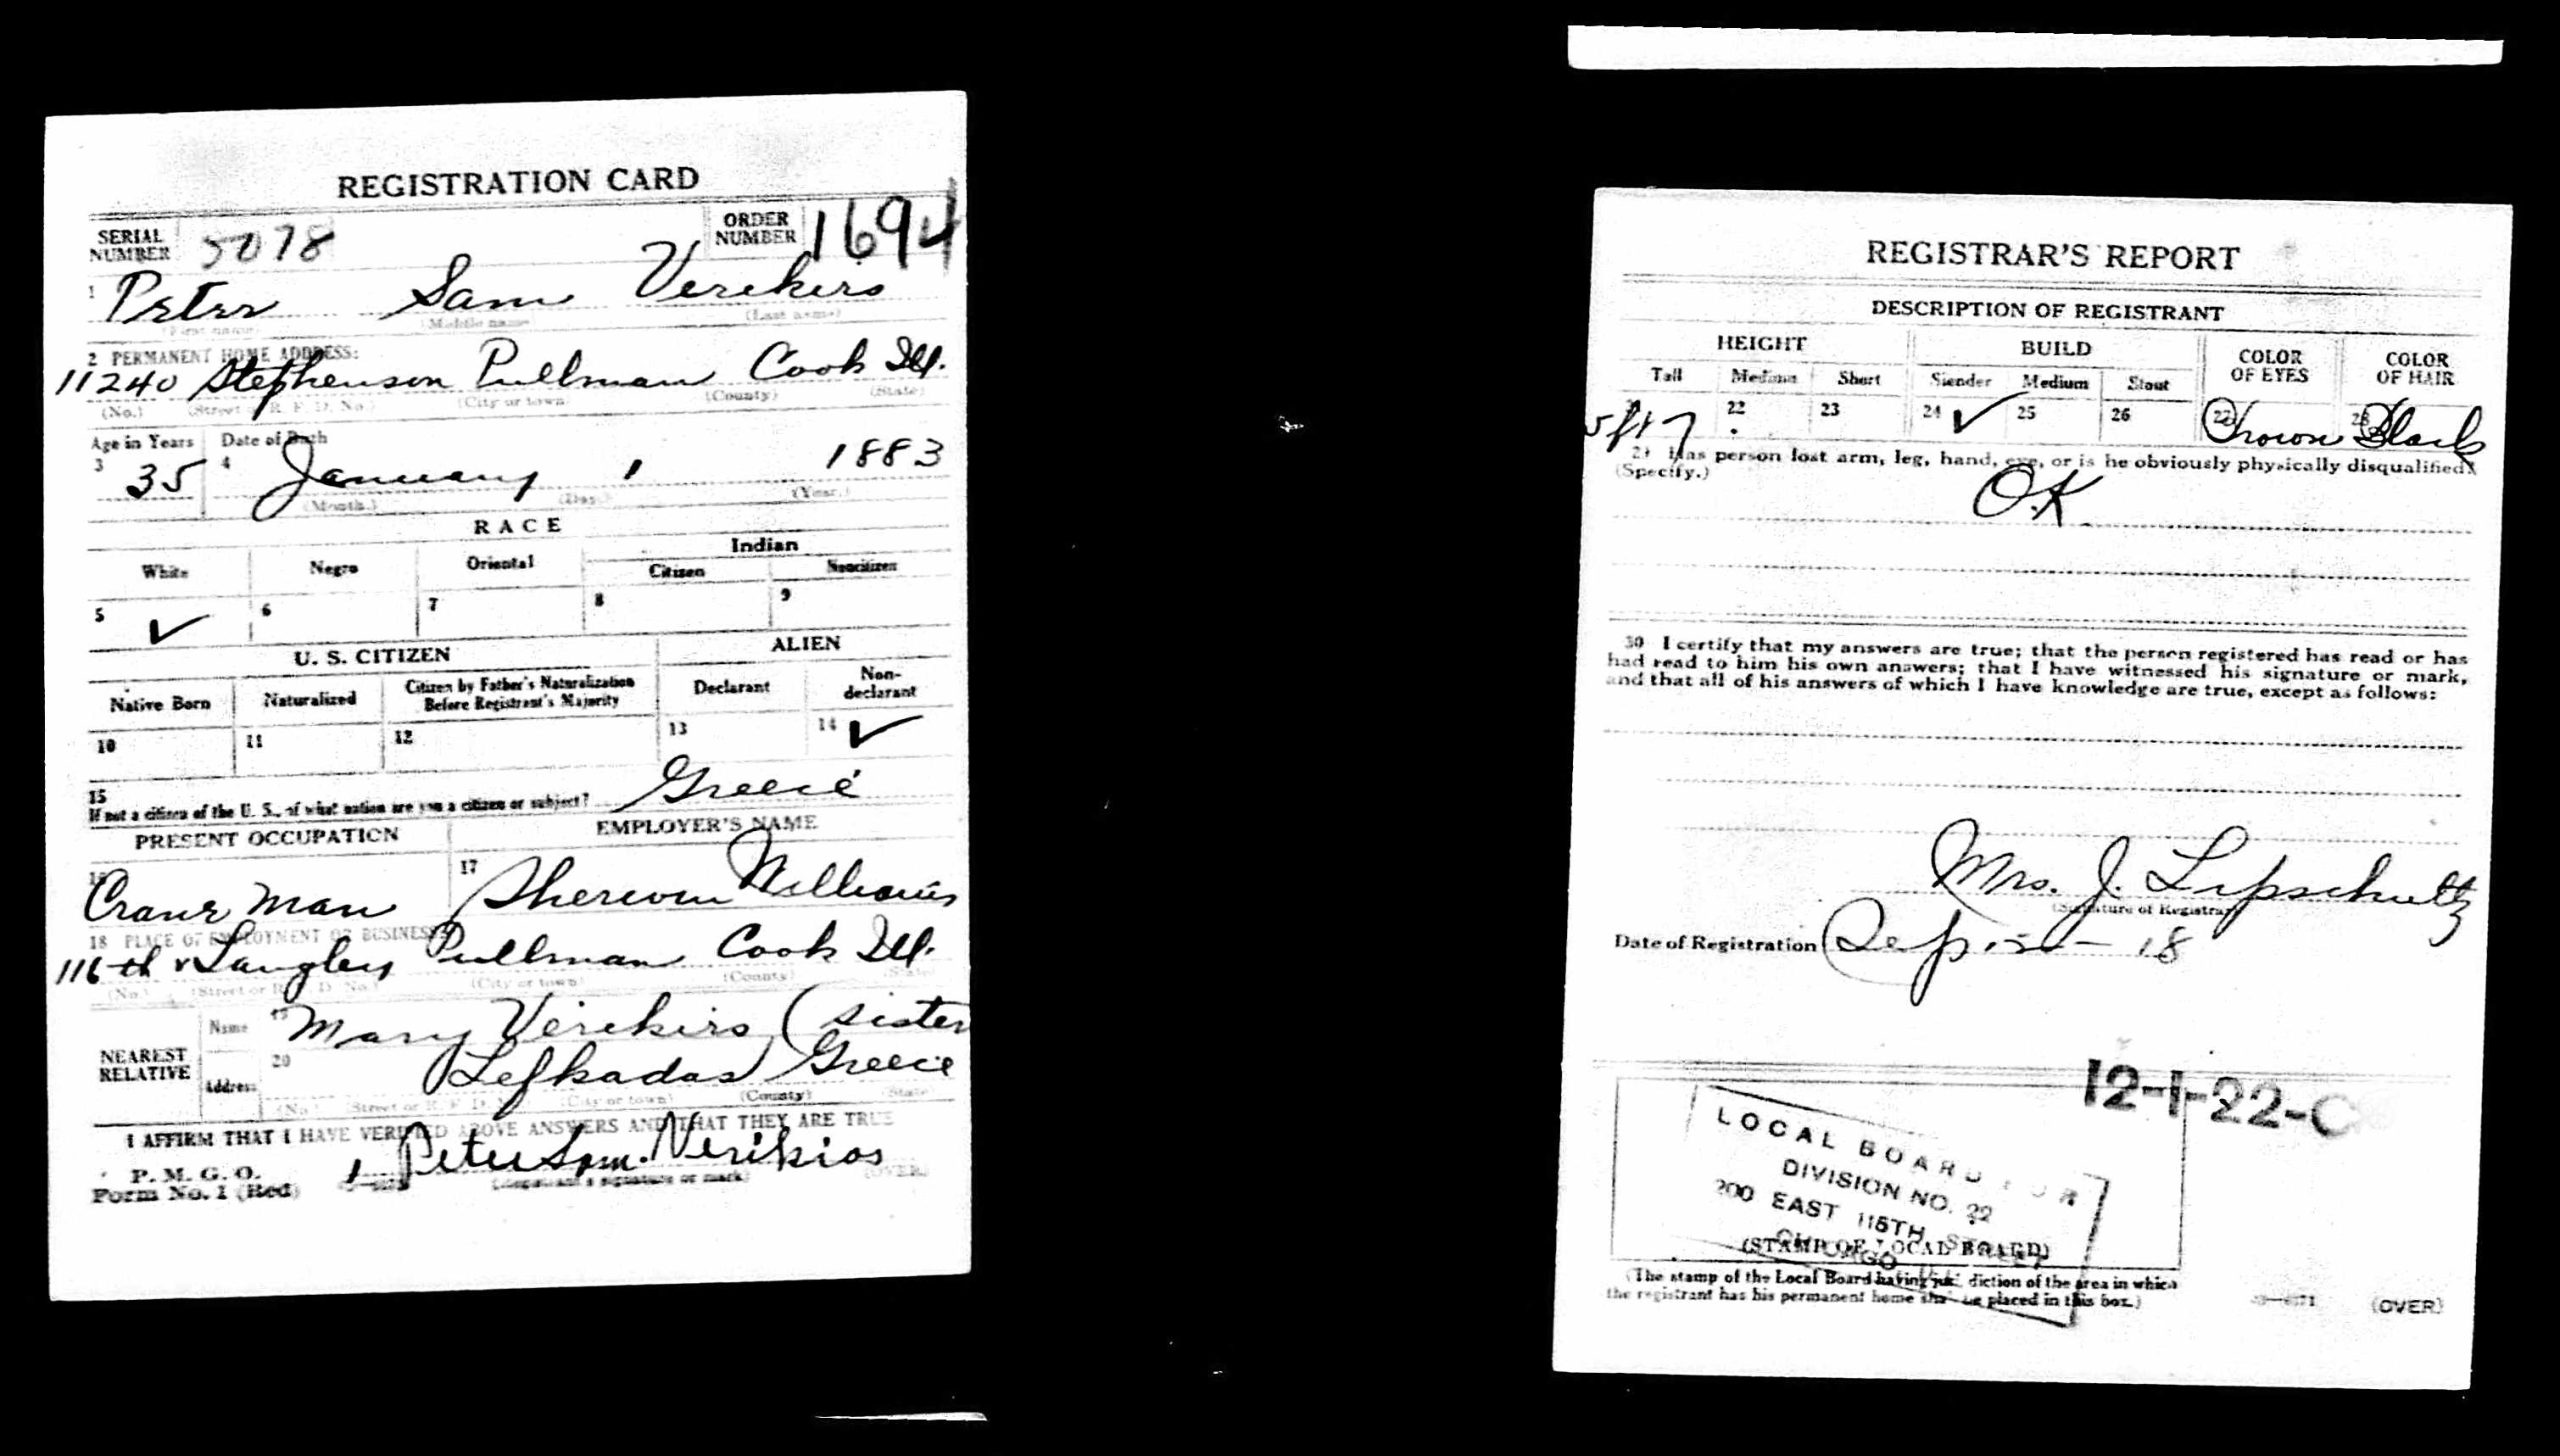 REGISTRATION CARD
SERIAL NUMBER 5078 ORDER NUMBER 1694
1 Peter Sam Verekiro
(First name) (Middle name) (Last name)
2 PERMANENT HOME ADDRESS:
11240 Stephenson Pullman Cook Ill.
(No.) (Street or R. F. D. No.) (City or town) (County) (State)
Age in Years Date of Birth
3 35 4 January 1 1883
(Month.) (Day.) (Year.)
RACE
White Negro Oriental Indian
Citizen Noncitizen
5 ✓ 6 7 8 9
U. S. CITIZEN ALIEN
Native Born Naturalized Citizen by Father's Naturalization Before Registrant's Majority Declarant Non-declarant
10 11 12 13 14 ✓
15
If not a citizen of the U. S., of what nation are you a citizen or subject? Greece
PRESENT OCCUPATION EMPLOYER'S NAME
16 Crane man 17 Sherwin Williams
18 PLACE OF EMPLOYMENT OR BUSINESS:
116th & Langley Pullman Cook Ill.
(No.) (Street or R. F. D. No.) (City or town) (County) (State)
NEAREST RELATIVE
Name 19 Mary Verekiro (sister
Address 20 Lefkadas) Greece
(No.) (Street or R. F. D. No.) (City or town) (County) (State)
I AFFIRM THAT I HAVE VERIFIED ABOVE ANSWERS AND THAT THEY ARE TRUE
P. M. G. O.
Form No. 1 (Red) Peter Sam. Verikios
(Registrant's signature or mark) (OVER)
REGISTRAR'S REPORT
DESCRIPTION OF REGISTRANT
HEIGHT BUILD COLOR OF EYES COLOR OF HAIR
Tall Medium Short Slender Medium Stout
5 ft 7 22 23 24 ✓ 25 26 27 Brown 28 Black
29 Has person lost arm, leg, hand, eye, or is he obviously physically disqualified?
(Specify.)
O.K.
30 I certify that my answers are true; that the person registered has read or has
had read to him his own answers; that I have witnessed his signature or mark,
and that all of his answers of which I have knowledge are true, except as follows:
Mrs. J. Lipschultz
(Signature of Registrar)
Date of Registration Sep 18
12-1-22-C
LOCAL BOARD FOR
DIVISION NO. 22
200 EAST 115TH STREET
CHICAGO
(STAMP OF LOCAL BOARD)
(The stamp of the Local Board having jurisdiction of the area in which
the registrant has his permanent home shall be placed in this box.)
(OVER)